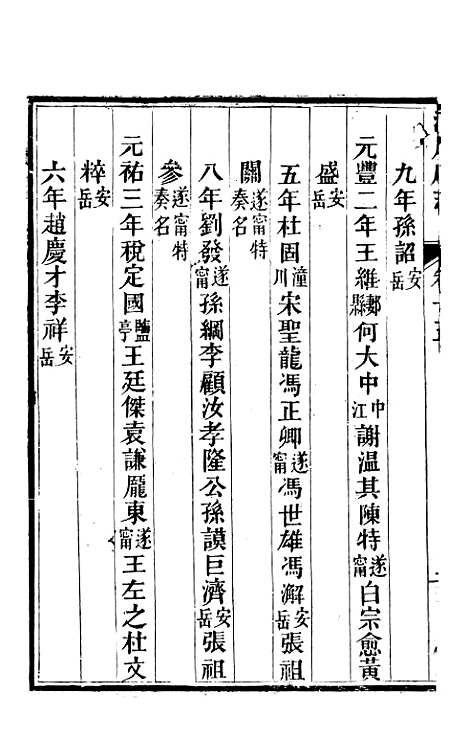 九年孫詔安岳
元豐二年王維郪縣何大中中江謝温其陳特遂甯白宗愈黃
盛安岳
五年杜固潼川宋聖龍馮正卿遂甯馮世雄馮澥安岳張祖
關遂甯特奏名
八年劉發遂甯孫綱李顧汝孝隆公孫謨巨濟安岳張祖
參遂甯特奏名
元祐三年稅定國鹽亭王廷傑袁謙龐東遂甯王左之杜文
粹安岳
六年趙慶才李祥安岳